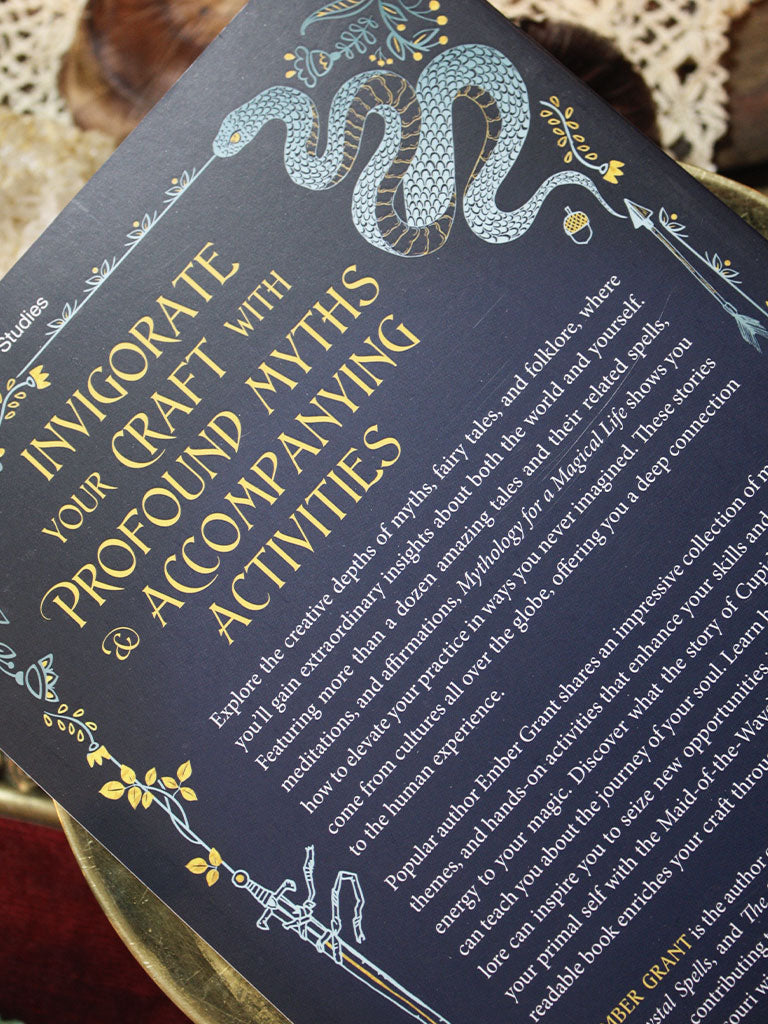 Studies
INVIGORATE
YOUR CRAFT WITH
PROFOUND MYTHS
& ACCOMPANYING
ACTIVITIES
Explore the creative depths of myths, fairy tales, and folklore, where
you'll gain extraordinary insights about both the world and yourself.
Featuring more than a dozen amazing tales and their related spells,
meditations, and affirmations, Mythology for a Magical Life shows you
how to elevate your practice in ways you never imagined. These stories
come from cultures all over the globe, offering you a deep connection
to the human experience.
Popular author Ember Grant shares an impressive collection of
themes, and hands-on activities that enhance your skills and
energy to your magic. Discover what the story of
can teach you about the journey of your soul. Learn
lore can inspire you to seize new opportunities
your primal self with the Maid-of-the-
readable book enriches your craft
GRANT is the author
Spells, and The
contributing